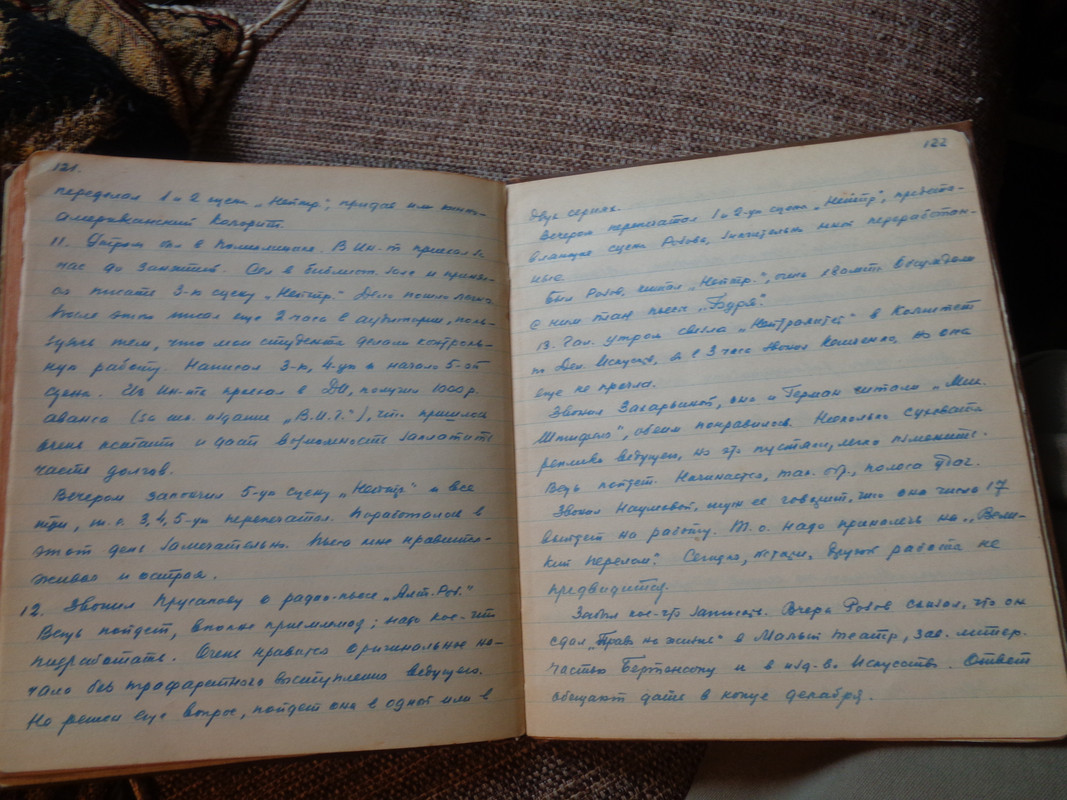 121.
переделал 1 и 2 сцен „Нейтр", придав им южно-
американский колорит.
11. Утром был в Поликлинике. В Ин-т приехал за
час до занятий. Сел в библиот. зале и принял-
ся писать 3-ю сцену „Нейтр." Дело пошло легко
после этого писал еще 2 часа в аудитории, поль-
зуясь тем, что мои студенты делали контроль-
ную работу. Написал 3-ю, 4-ую и начало 5-ой
сцены. Из Ин-та приехал в ДИ, получил 1000 р.
аванса (за издание „В.И.Г."), что пришлось
очень кстати и даст возможность заплатить
часть долгов.
Вечером закончил 5-ую сцену „Нейтр" и все
три, т.е. 3, 4, 5-ую перепечатал. Поработалось в
этот день замечательно. Пьеса мне нравится -
живая и острая.
12. Звонил Прусакову о радио-пьесе „Алт. Роб."
Вещь пойдет, вполне приемлемо; надо кое-что
подработать. Очень нравится оригинальное на-
чало без трафаретного выступления ведущего.
Не решен еще вопрос, пойдет она в одной или в
122
двух сериях.
Вечером перепечатал 1 и 2-ую сцены „Нейтр", предста-
вляющие сцены Розова, значительно мной переработан-
ные
Был Розов, читал „Нейтр.", очень хвалит. Обсуждали
с ним план пьесы „Буря".
13. Гал. утром свезла „Нейтралитет" в Комитет
по Дел. Искусств, в 3 часа звонил но она
еще не прочла.
Звонил Захарьиной, она и Герман читали „Мих.
обоим понравилось. Несколько суховаты
реплики ведущего, но это пустяки, легко изменить.
Вещь пойдет. Начинается, так. обр., полоса удач.
Звонил Наумовой, муж ее говорит, что она числа 17
выйдет на работу. Т.о. надо приналечь на „Вели-
кий перелом". Сегодня, кстати, другой работы не
предвидится.
Забыл кое-что записать. Вчера Розов сказал, что он
сдал „Право на жизнь" в Малый театр, зав. литер.
частью Бертенсону и в изд-во Искусство. Ответ
обещают дать в конце декабря.